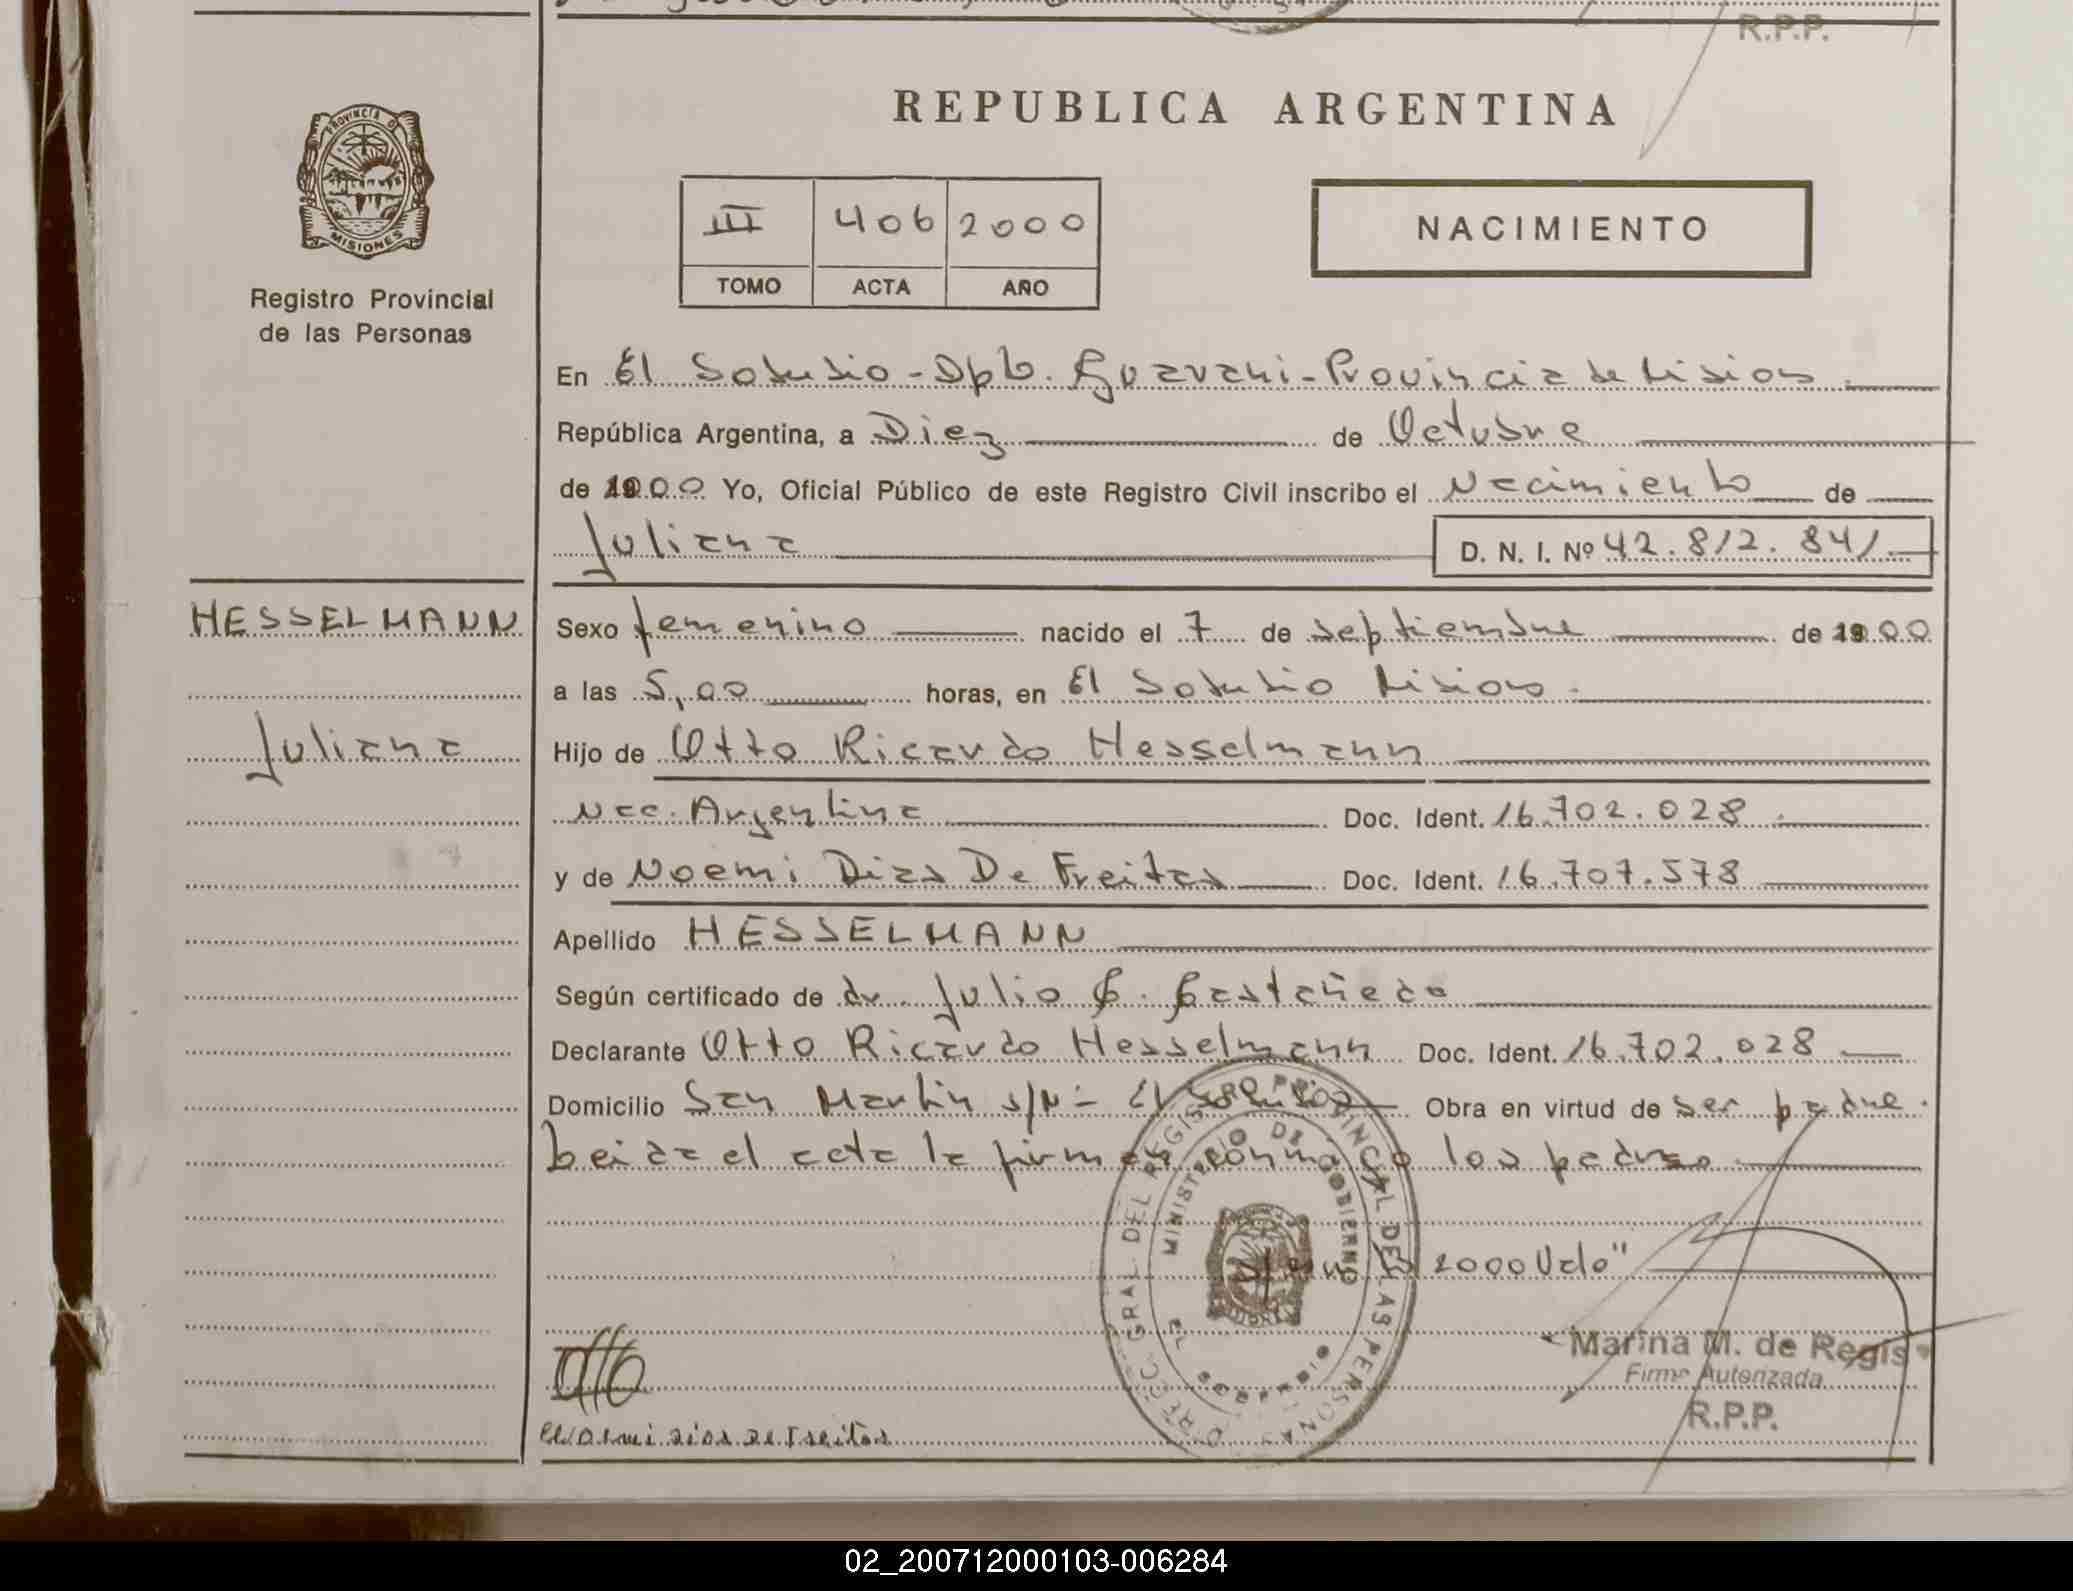 R.P.P.
PROVINCIA DE
MISIONES
Registro Provincial
de las Personas
REPUBLICA ARGENTINA
III 406 2000
TOMO ACTA AÑO
NACIMIENTO
En El Soberbio - Dpto. Guarani - Provincia de Misiones.
República Argentina, a Diez de Octubre
de 1900 Yo, Oficial Público de este Registro Civil inscribo el Nacimiento de
Juliana D. N. I. Nº 42.812.841
HESSELMANN
Sexo femenino nacido el 7 de septiembre de 1900
a las 5,00 horas, en El Soberbio Misiones.
Juliana
Hijo de Otto Ricardo Hesselmann
Nac. Argentina Doc. Ident. 16.702.028
y de Noemi Dias De Freitas Doc. Ident. 16.707.578
Apellido HESSELMANN
Según certificado de dr. Julio G. Castañeda
Declarante Otto Ricardo Hesselmann Doc. Ident. 16.702.028
Domicilio San Martin s/Nº El Soberbio Obra en virtud de ser padre.
Leida el acta la firman conmigo los padres
2000 Vale"
DIRECC. GRAL. DEL REGISTRO PROVINCIAL DE LAS PERSONAS
MINISTERIO DE GOBIERNO
EL SOBERBIO
Otto
Noemi dias de Freitas
Marina M. de Regis
Firma Autorizada
R.P.P.
02_200712000103-006284